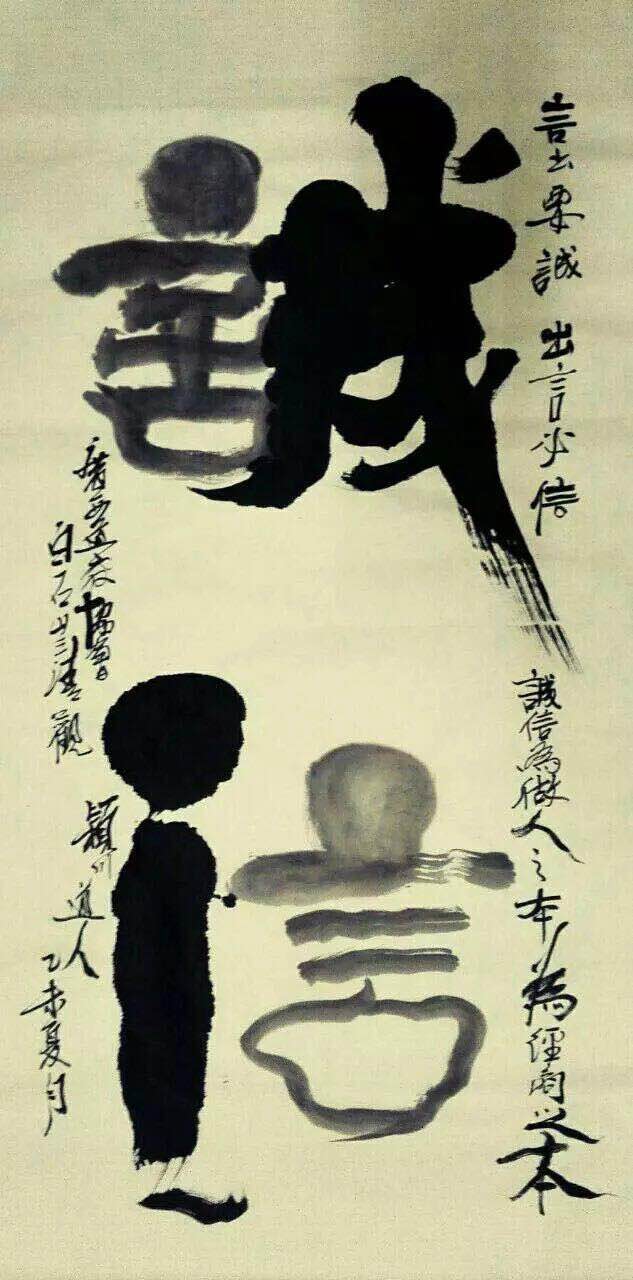 誠信
言出要誠 出言必信
誠信為做人之本為經商之本
廣西道教協會
白石山三清觀
穎川道人
乙未夏月